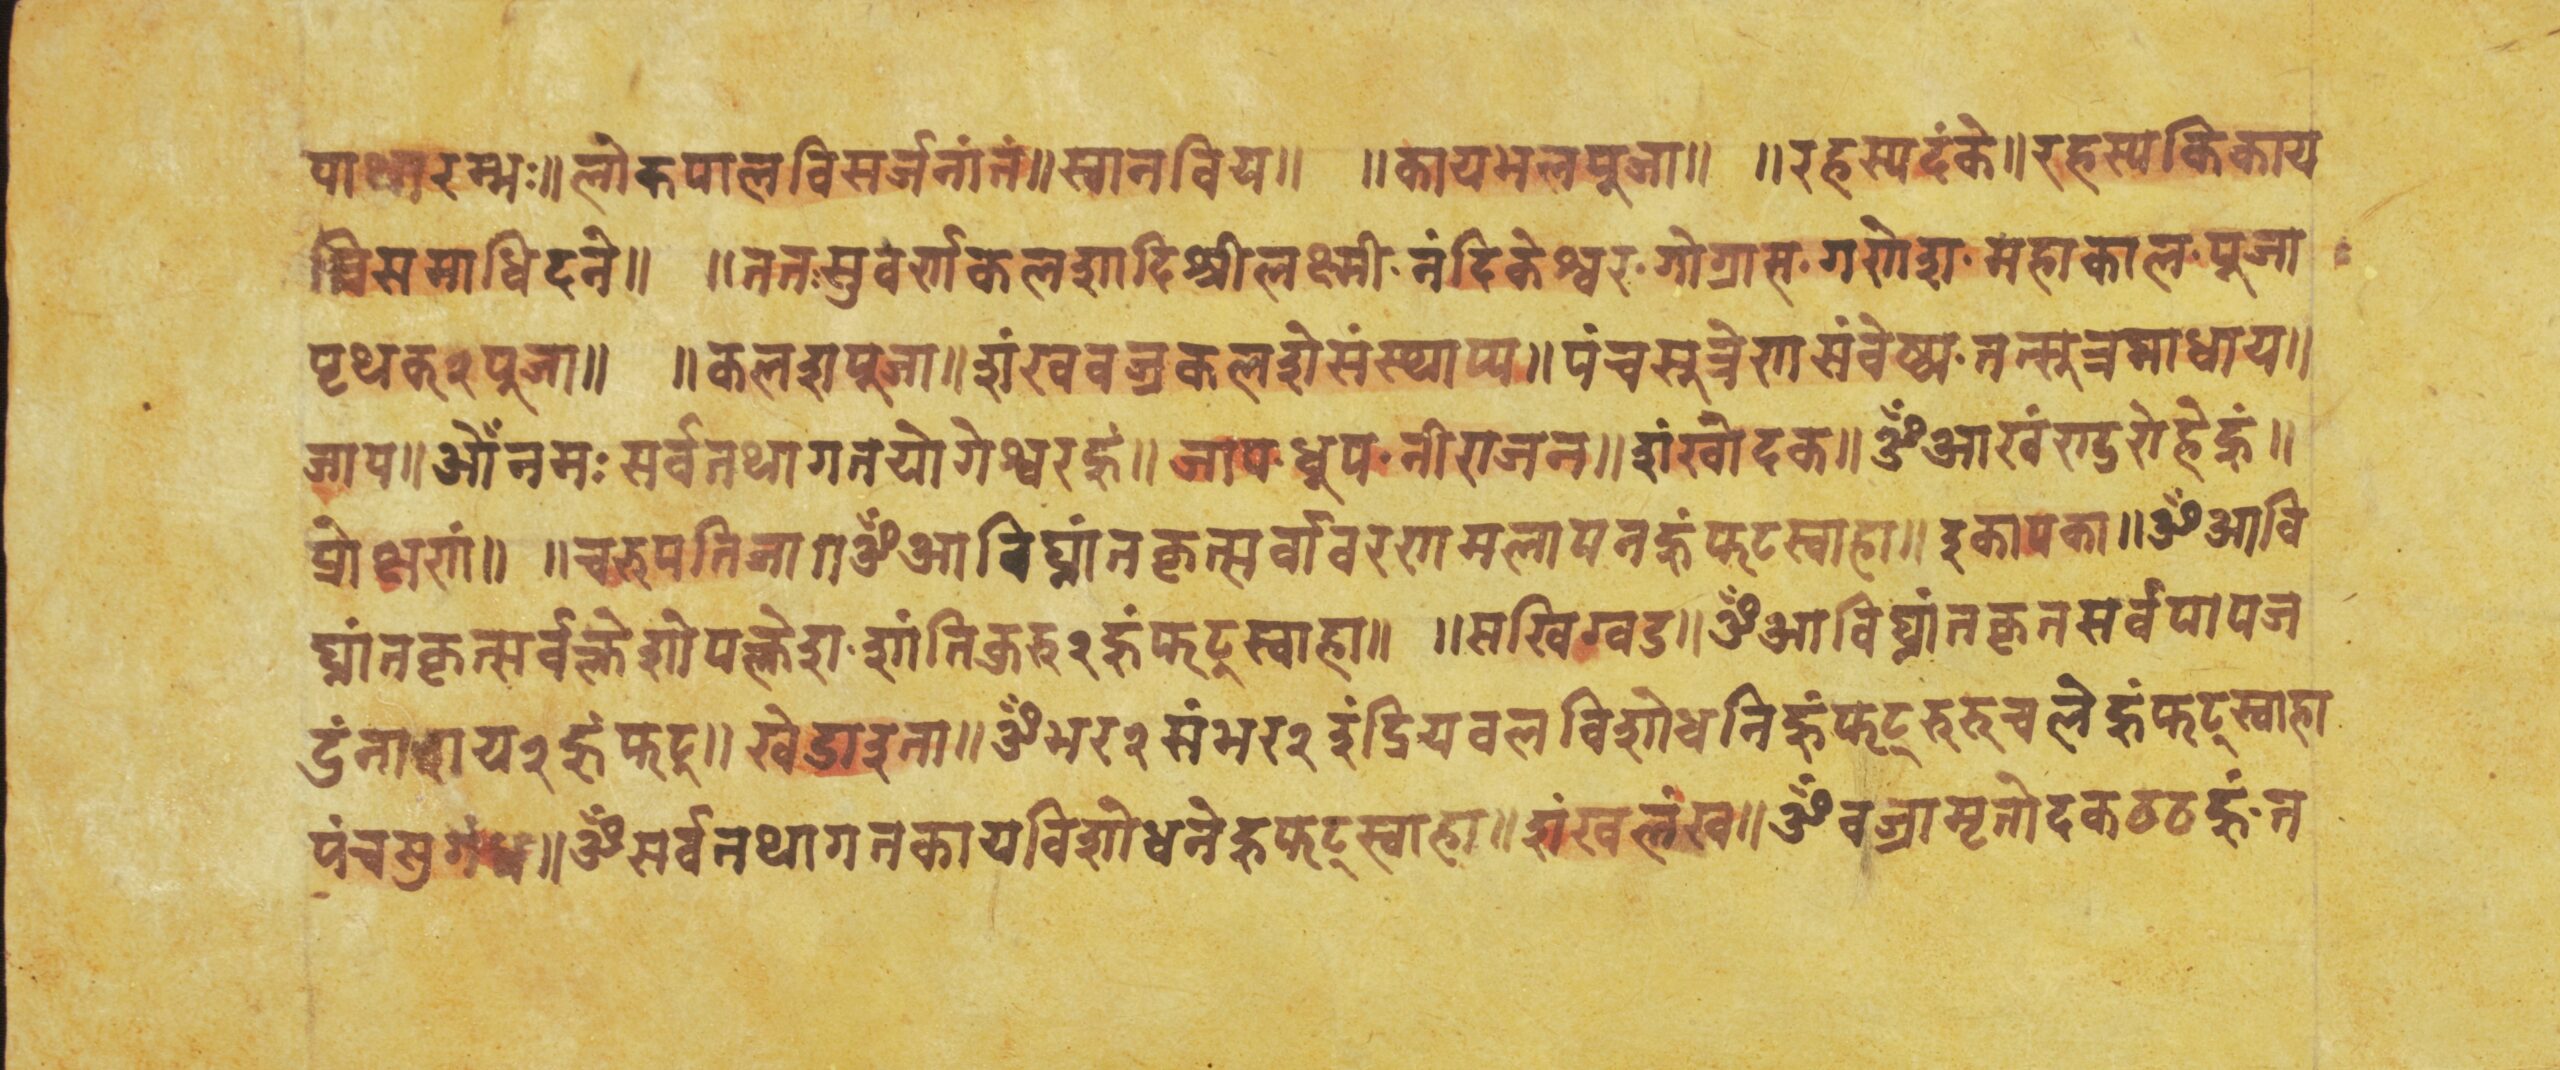 पाथारम्भः॥लोकपालविसर्जनांतं॥स्वानविय॥ ॥कायभलपूजा॥ ॥रहस्यदंके॥रहस्यकिकाय
त्रिसमाधिदने॥ ॥ततःसुवर्णकलशादिश्रीलक्ष्मी·नंदिकेश्वर·गोग्रास·गणेश·महाकाल·पूजा
पृथक्२पूजा॥ ॥कलशपूजा॥शंखवज्रकलशेसंस्थाप्य॥पंचसूत्रेणसंवेष्ट्य·तत्सूत्रमाधाय॥
जाप॥ओँनमःसर्वतथागतयोगेश्वरहुं॥जाप·धूप·नीराजन॥शंखोदक॥ॐआखंराडुरोहेहुं॥
प्रोक्षणं॥ ॥चरुपतिजाग॥ॐआविघ्नांतकृत्सर्वावरणमलापनहुंफट्स्वाहा॥इकापका॥ॐआवि
घ्नांतकृत्सर्वक्लेशोपक्लेश·शांतिकुरु२हुंफट्स्वाहा॥ ॥सखिग्वड॥ॐआविघ्नांतकृतसर्वपापज
डंनाशय२हुंफट्॥खेडाइता॥ॐभर२संभर२इंद्रियबलविशोधनिहुंफट्रुरुचलेहुंफट्स्वाहा
पंचसुगंध॥ॐसर्वतथागतकायविशोधनेहुफट्स्वाहा॥शंखलंख॥ॐवज्रामृतोदकठठहुं·त